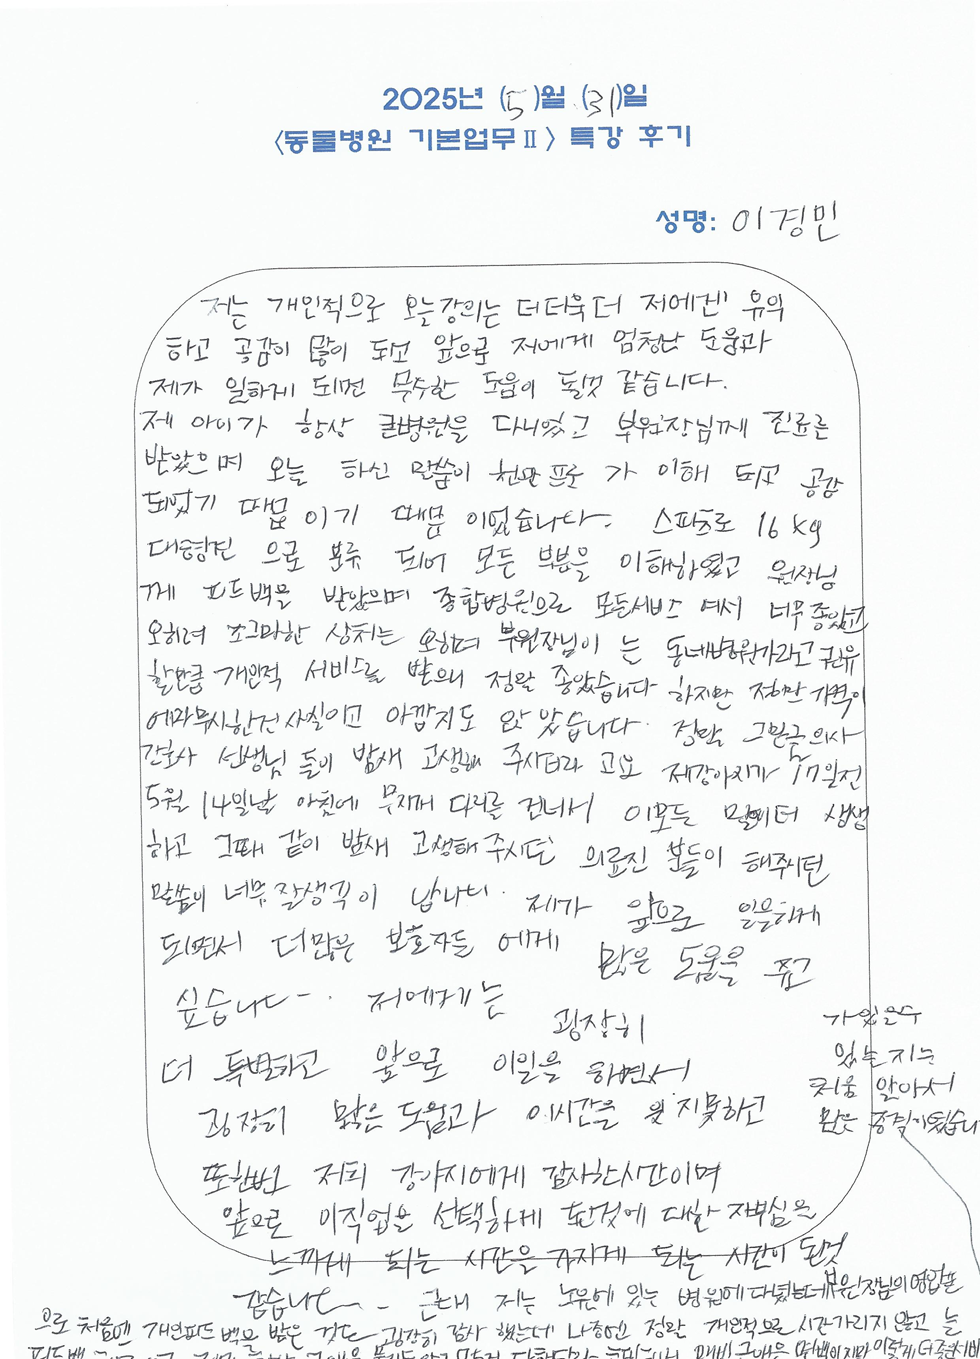 2025년 (5)월 (31)일
〈동물병원 기본업무Ⅱ〉 특강 후기
성명: 이경민
저는 개인적으로 오늘강의는 더더욱더 저에겐 유익
하고 공감이 많이 되고 앞으로 저에게 엄청난 도움과
제가 일하게 되면 무수한 도움이 될것 같습니다.
제 아이가 항상 큰병원을 다니었고 부원장님께 진료를
받았으며 오늘 하신 말씀이 천만 프로 가 이해 되고 공감
되었기 때문 이기 때문 이었습니다. 스피츠로 16kg
대형견 으로 분류 되어 모든 부분을 이해하였고 원장님
께 피드백을 받았으며 종합병원으로 모든서비스 에서 너무좋았고
오히려 조그마한 상처는 오히려 부원장님이 는 동네병원가라고 권유
할만큼 개인적 서비스를 받으니 정말 좋았습니다 하지만 저만 가격이
어마무시한건 사실이고 아깝지도 않 았습니다. 정말 그만큼 의사
간호사 선생님 들이 밤새 고생해 주시더라 고요 제강아지가 17일전
5월 14일날 아침에 무지개 다리를 건너서 이모든 말이 더 생생
하고 그때 같이 밤새 고생해주시던 의료진 분들이 해주시던
말씀이 너무 잘생각 이 납니다. 제가 앞으로 일을하게
되면서 더많은 보호자들 에게 많은 도움을 주고
싶습니다. 저에게는 굉장히
더 특별하고 앞으로 이일을 하면서
굉장히 많은 도움과 이시간을 잊지못하고
또한번 저희 강아지에게 감사한시간이며
앞으로 이직업을 선택하게 된것에 대한 자부심을
느끼게 되는 시간을 가지게 되는 시간이 된것
같습니다. 근데 저는 노원에 있는 병원에 다녔는데 부원장님의 영업
으로 처음엔 개인피드백을 받은 것도 굉장히 감사 했는데 나중엔 정말 개인적으로 시간가리지 않고 늘
가있을수
있는지는
처음 알아서
많은 충격이었습니